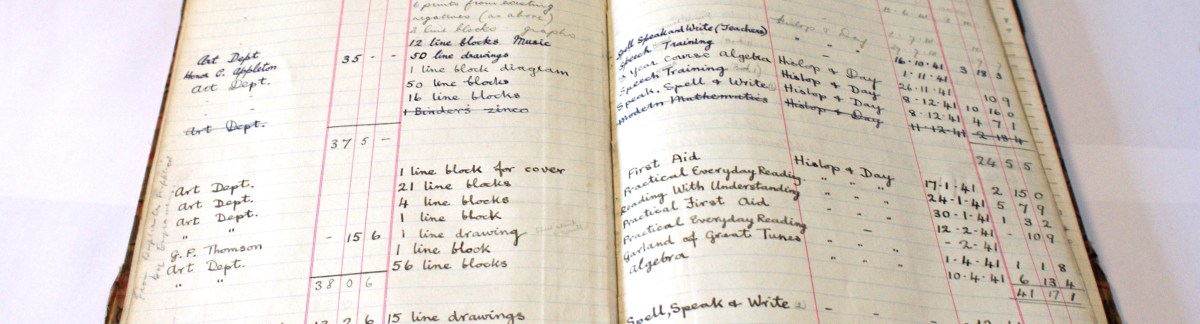 6 prints from existing
negatives (as above)
2 line blocks graphs
12 line blocks Music
Art Dept 35 - - 50 line drawings
Honor C. Appleton 1 line block diagram
Art Dept. 50 line blocks
" 16 line blocks
Art Dept. 1 Binder's zinco
37 5 -
1 line block for cover
Art Dept. 21 line blocks
Art Dept. 4 line blocks
Art Dept. 1 line block
" " - 15 6 1 line drawing
G. P. Thomson 1 line block
Art Dept. 56 line blocks
" "
38 0 6
6 15 line drawings
Hislop & Day
Spell Speak and Write (Teachers)
Speech Training
3 year course Algebra Hislop & Day 16.10.41 3 18 3
Speech Training Hislop & Day 1.11.41
Speak, Spell & Write Hislop & Day 26.11.41 10 9
Modern Mathematics Hislop & Day 8.12.41 10 16 0
Hislop & Day 8.12.41 4 7 1
11.12.41 2 18 4
24 5 5
First Aid Hislop & Day 17.1.41 2 15 0
Practical Everyday Reading " " " 24.1.41 5 7 9
Reading With Understanding " " " 30.1.41 1 3 2
Practical First Aid 12.2.41 - 10 9
Practical Everyday Reading - - 2.41
Garland of Great Tunes " " " 1.4.41 1 1 8
Algebra " " " 10.4.41 6 13 4
41 17 1
Spell, Speak & Write